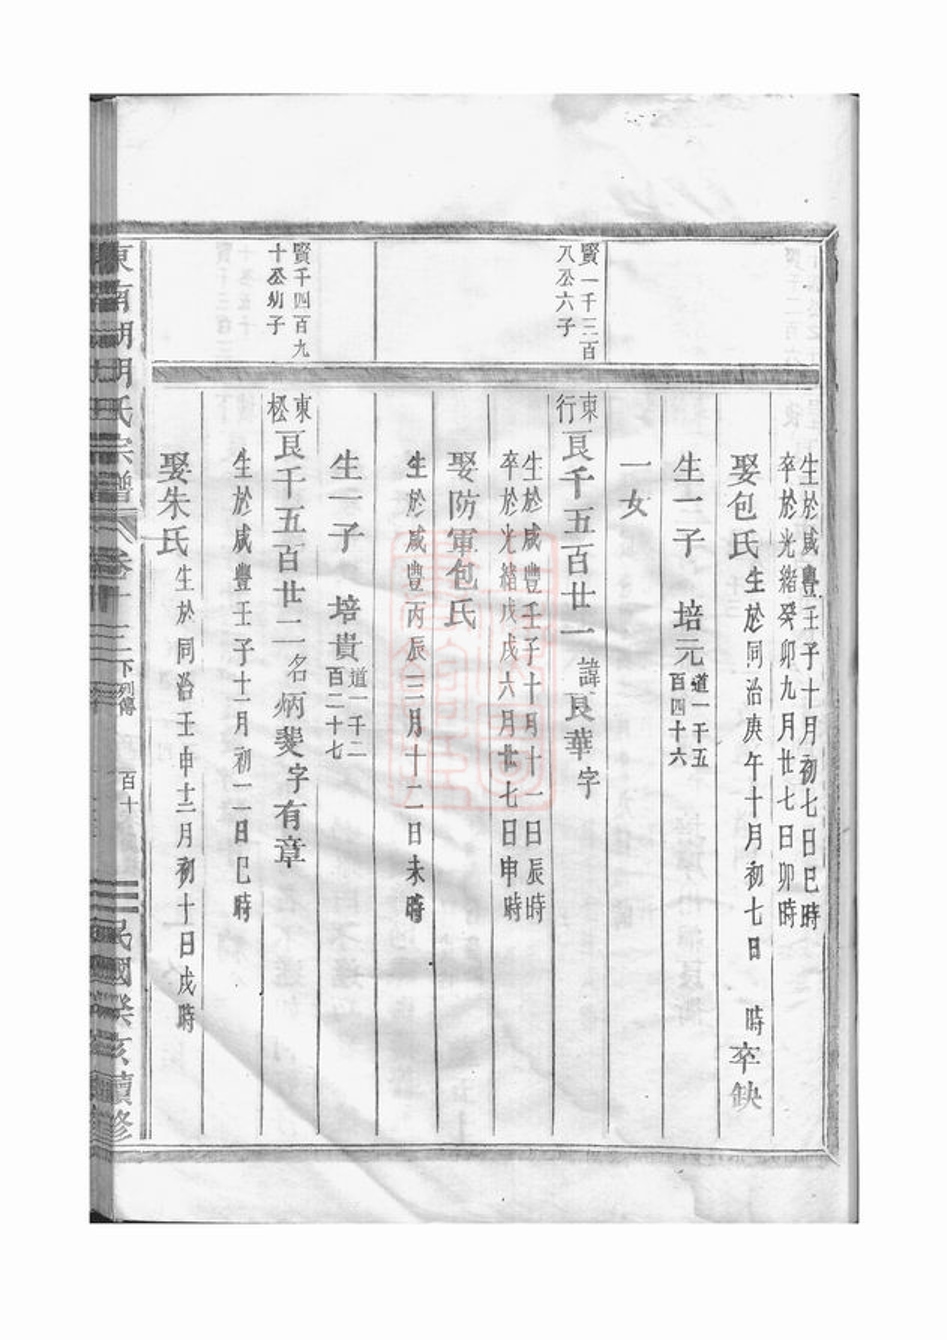 生於咸豐壬子十月初七日巳時
卒於光緒癸卯九月廿七日卯時
娶包氏 生於同治庚午十月初七日 時 卒缺
生一子 培元 道一千五百四十六
一女
賢一千三百八公六子
東行 良千五百廿一 諱良華 字
生於咸豐壬子十月十一日辰時
卒於光緒戊戌六月廿七日申時
娶防軍包氏
生於咸豐丙辰三月十二日未時
生一子 培貴 道一千二百二十七
賢千四百九十公幼子
東松 良千五百廿二 名炳斐 字有章
生於咸豐壬子十一月初二日巳時
娶朱氏 生於同治壬申十二月初十日戌時
東南湖明氏宗譜 卷十三 下列傳 百十 民國癸亥續修